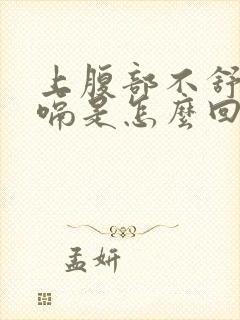 上腹部不舒
嗝是怎麼回
孟妍